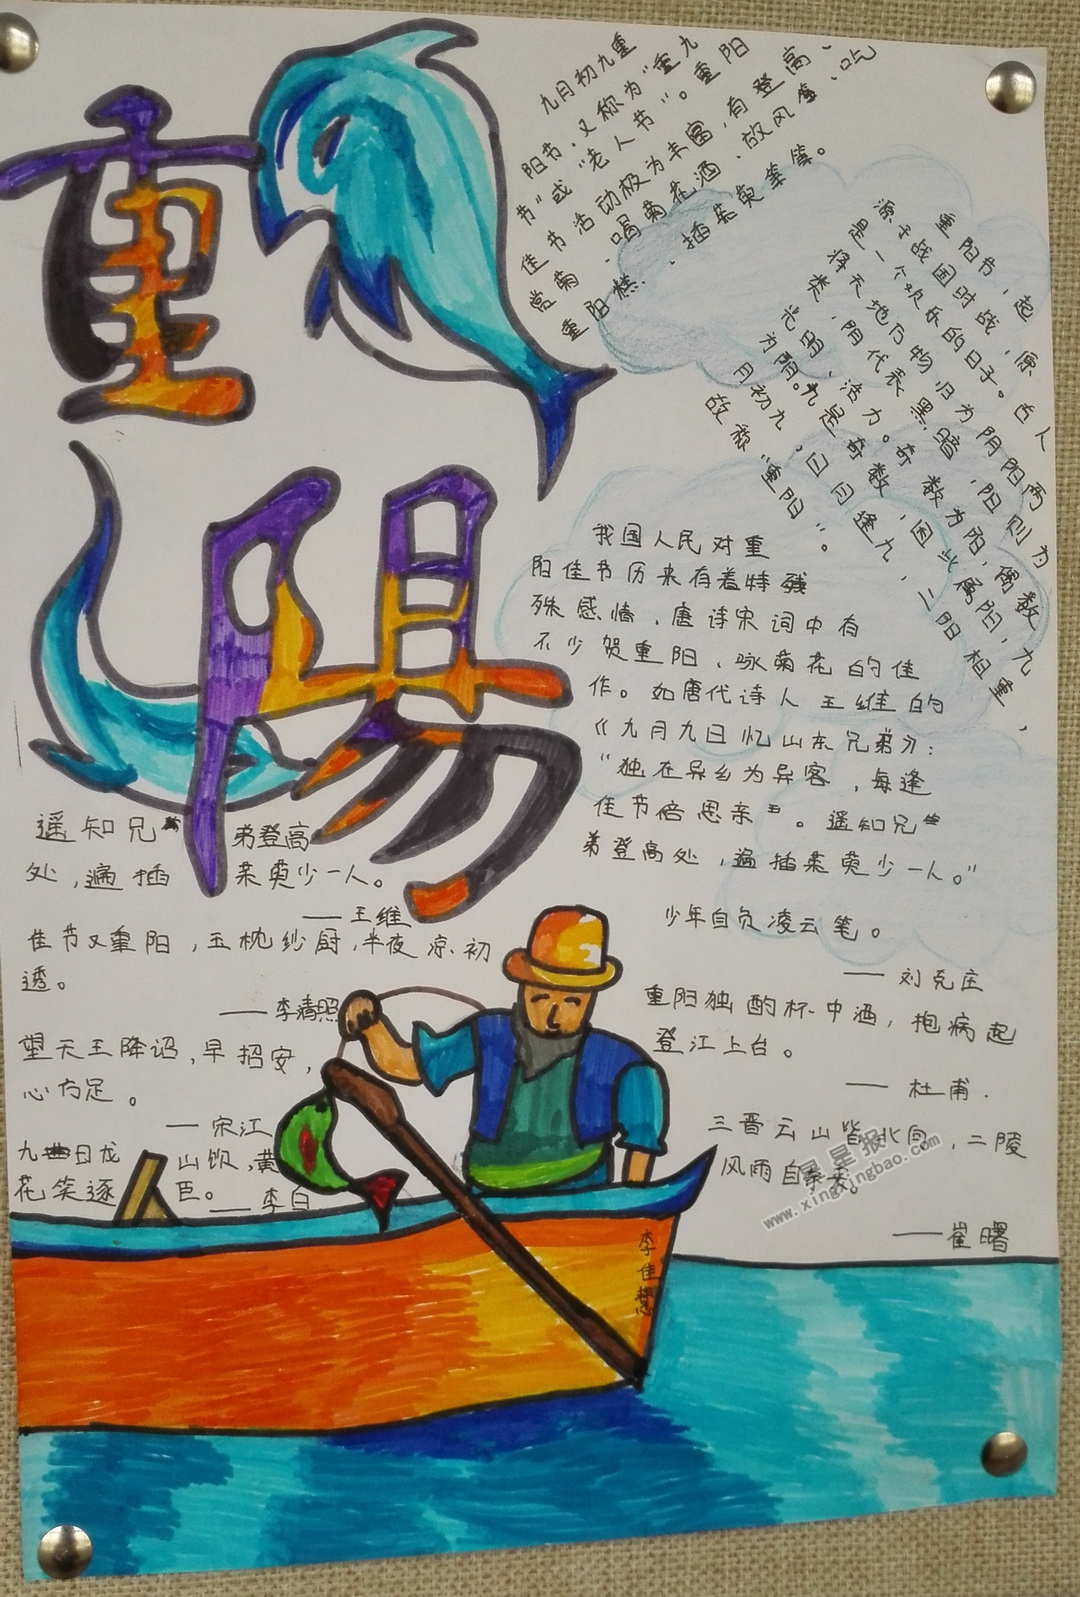 重
陽
九月初九重
阳节,又称为“重九
节”或“老人节”。重阳
佳节活动极为丰富,有登高、
赏菊、喝菊花酒、放风筝、吃
重阳糕、插茱萸等等。
重阳节,起
源于战国时战,原
是一个欢乐的日子。古人
将天地万物归为阴阳两
类,阴代表黑暗,阳则为
光明、活力。奇数为阳,偶数
为阴。九是奇数,因此属阳,九
月初九,日月逢九,二阳相重,
故称“重阳”。
我国人民对重
阳佳节历来有着特
殊感情,唐诗宋词中有
不少贺重阳、咏菊花的佳
作。如唐代诗人王维的
《九月九日忆山东兄弟》:
“独在异乡为异客,每逢
佳节倍思亲。遥知兄
弟登高处,遍插茱萸少一人。”
遥知兄 弟登高
处,遍插 茱萸少一人。
——王维
佳节又重阳,玉枕纱厨,半夜凉初
透。
——李清照
望天王降诏,早招安,
心方足。
——宋江
九曲日龙 山饮,黄
花笑逐 臣。
——李白
少年自负凌云笔。
——刘克庄
重阳独酌杯中酒,抱病起
登江上台。
——杜甫.
三晋云山皆北向,二陵
风雨自 来。
——崔曙
李佳
星星报
www.xingxingbao.com